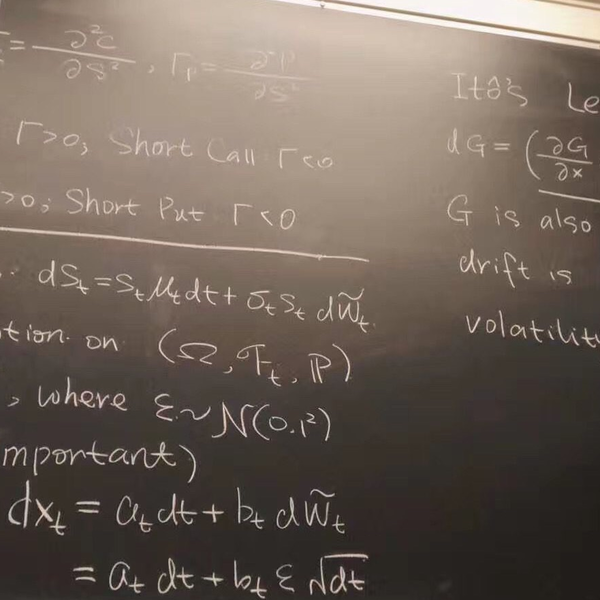 = ∂²c/∂s², Γp = ∂²P/∂s²
Γ>0; Short Call Γ<0
>0; Short Put Γ<0
dSt = St μt dt + σt St dW̃t
tion on (Ω, Ft, ℙ)
, where ε ~ N(0.1²)
mportant)
dxt = at dt + bt dW̃t
= at dt + bt ε √dt
Itô's Le
dG = (∂G/∂x
G is also
drift is
volatility